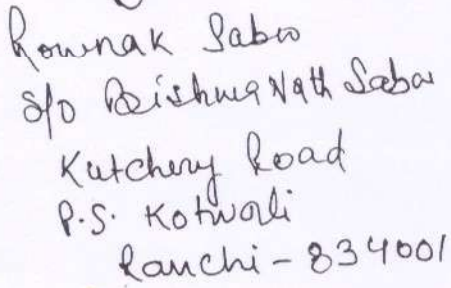 Rownak Sabw
S/o Bishwa Nath Sabw
Kutchery Road
P.S. Kotwali
Ranchi - 834001